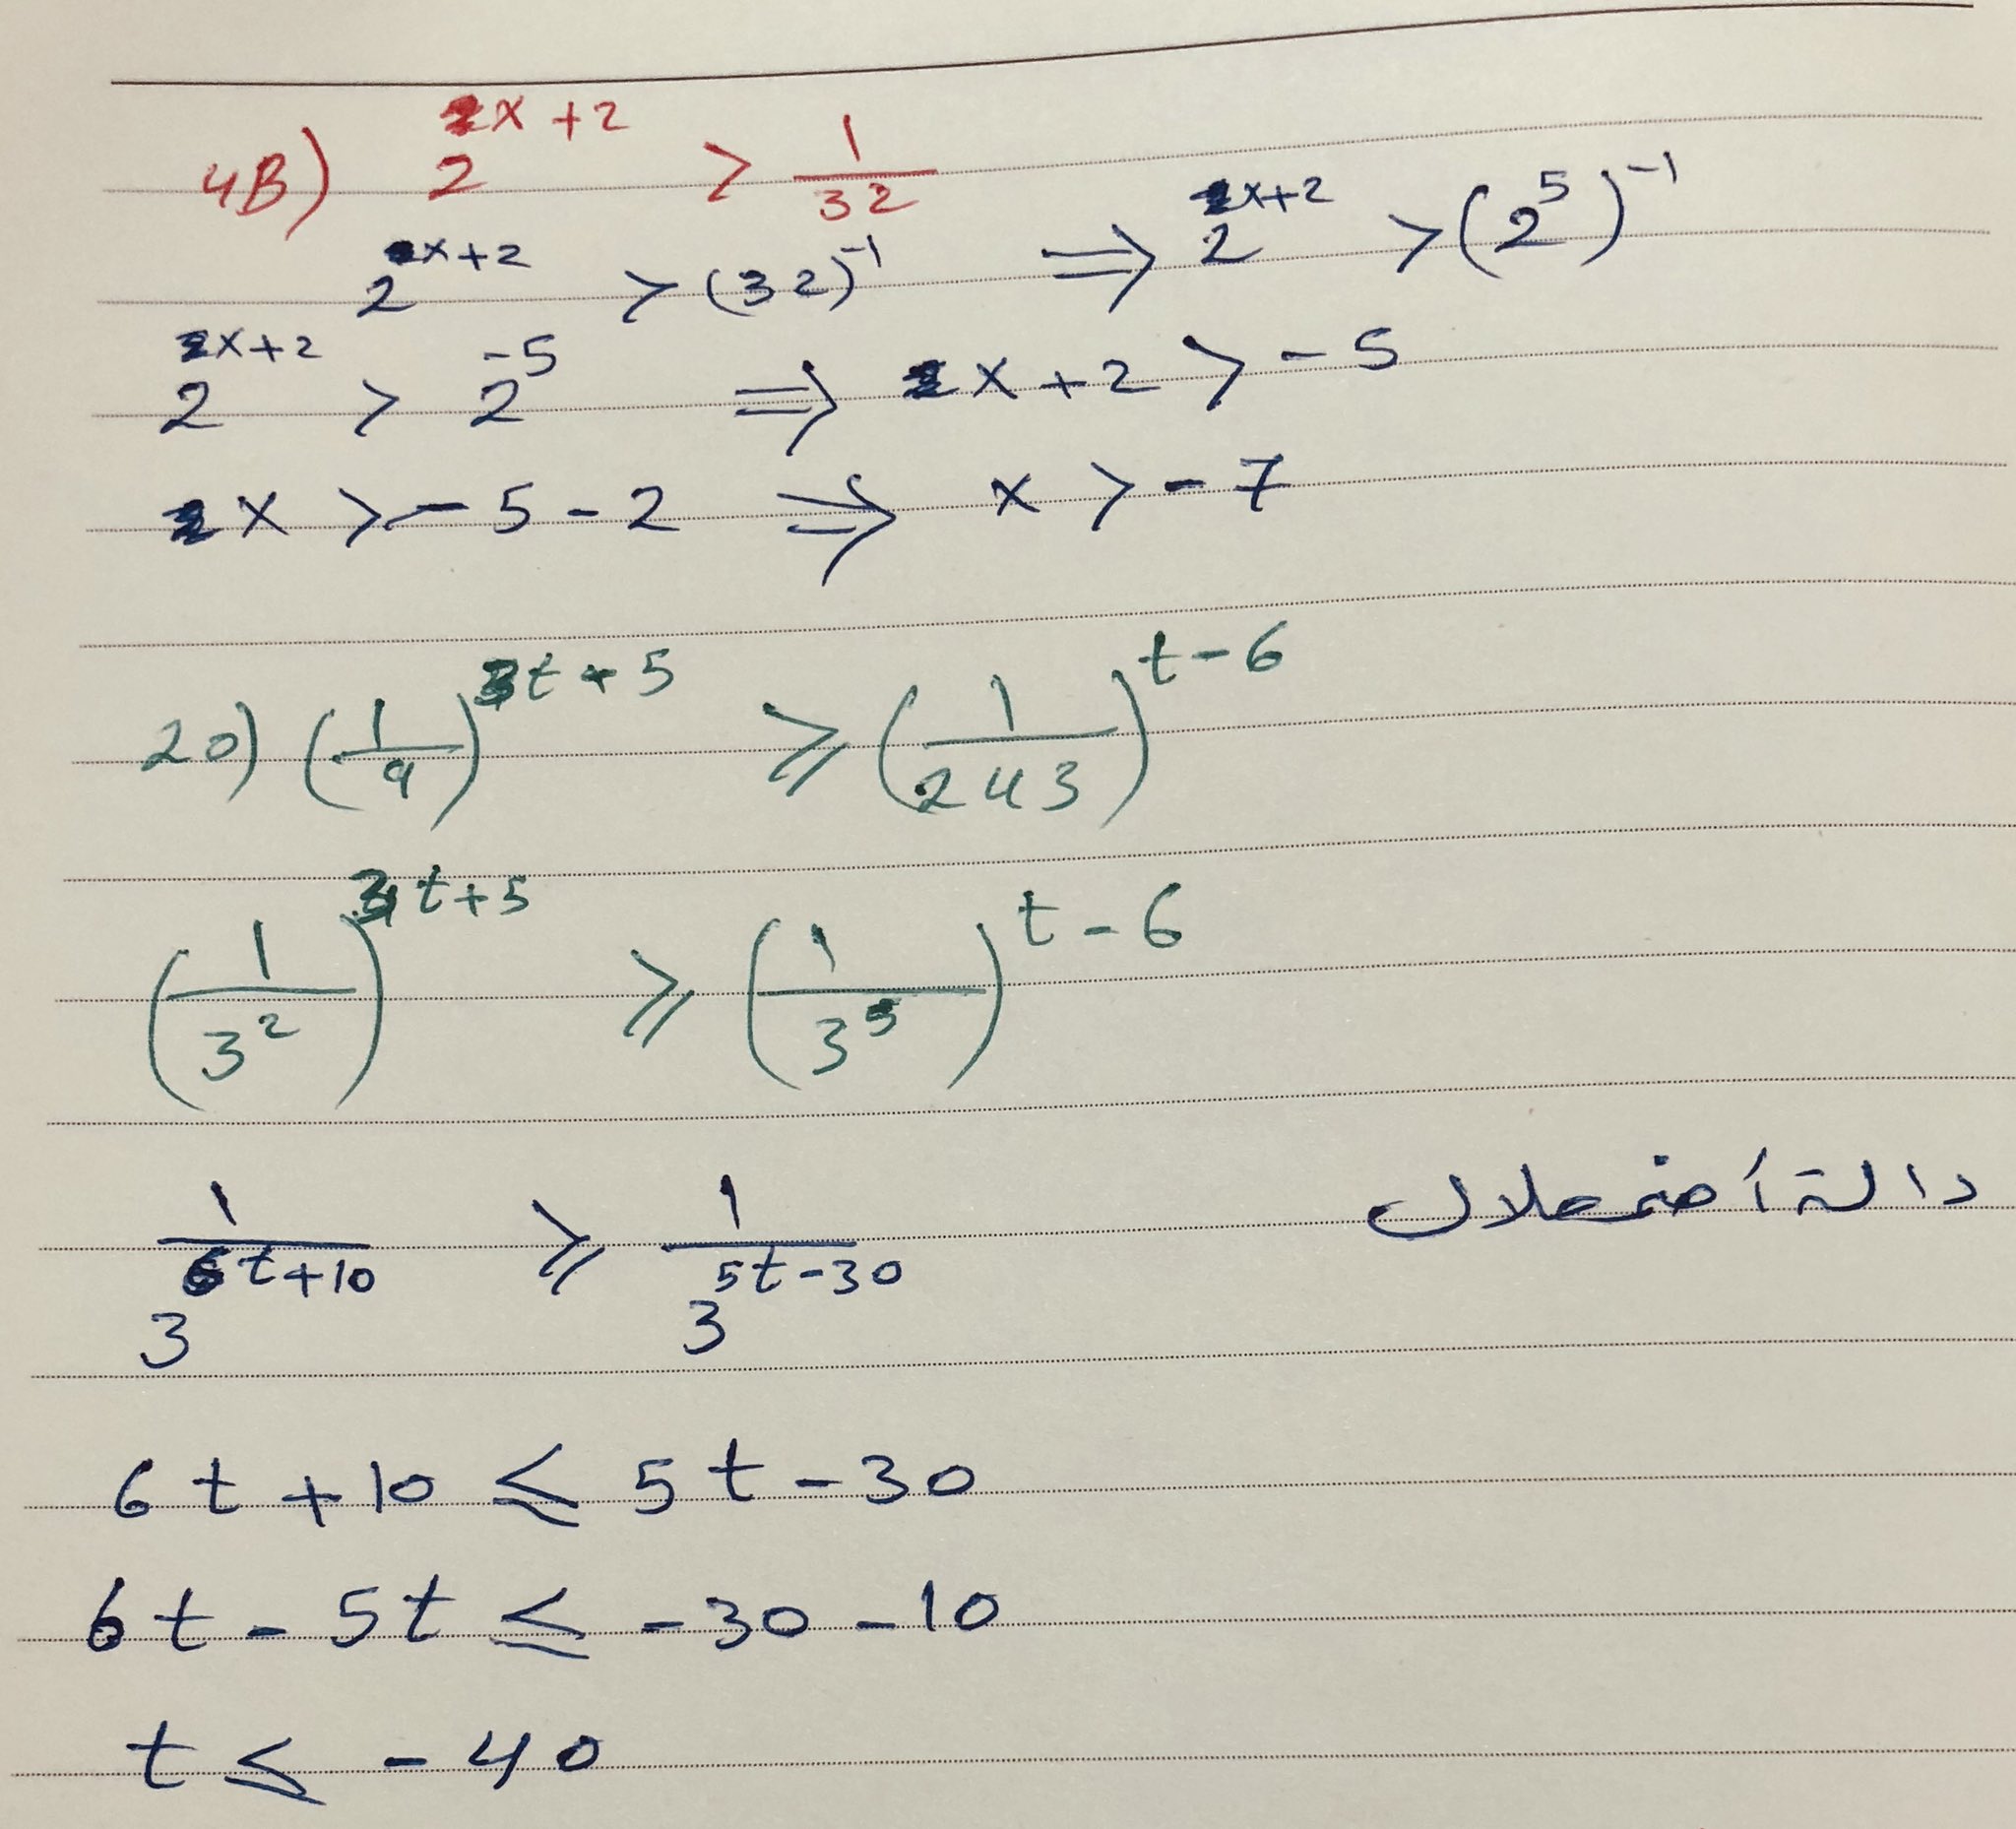 4B) 2^{x+2} > 1/32
2^{x+2} > (32)^{-1} ⇒ 2^{x+2} > (2^5)^{-1}
2^{x+2} > 2^{-5} ⇒ x + 2 > - 5
x > - 5 - 2 ⇒ x > - 7
20) (1/9)^{3t+5} ≥ (1/243)^{t-6}
(1/3^2)^{3t+5} ≥ (1/3^5)^{t-6}
1/3^{6t+10} ≥ 1/3^{5t-30} دالة أضمحلال
6t + 10 ≤ 5t - 30
6t - 5t ≤ - 30 - 10
t ≤ - 40